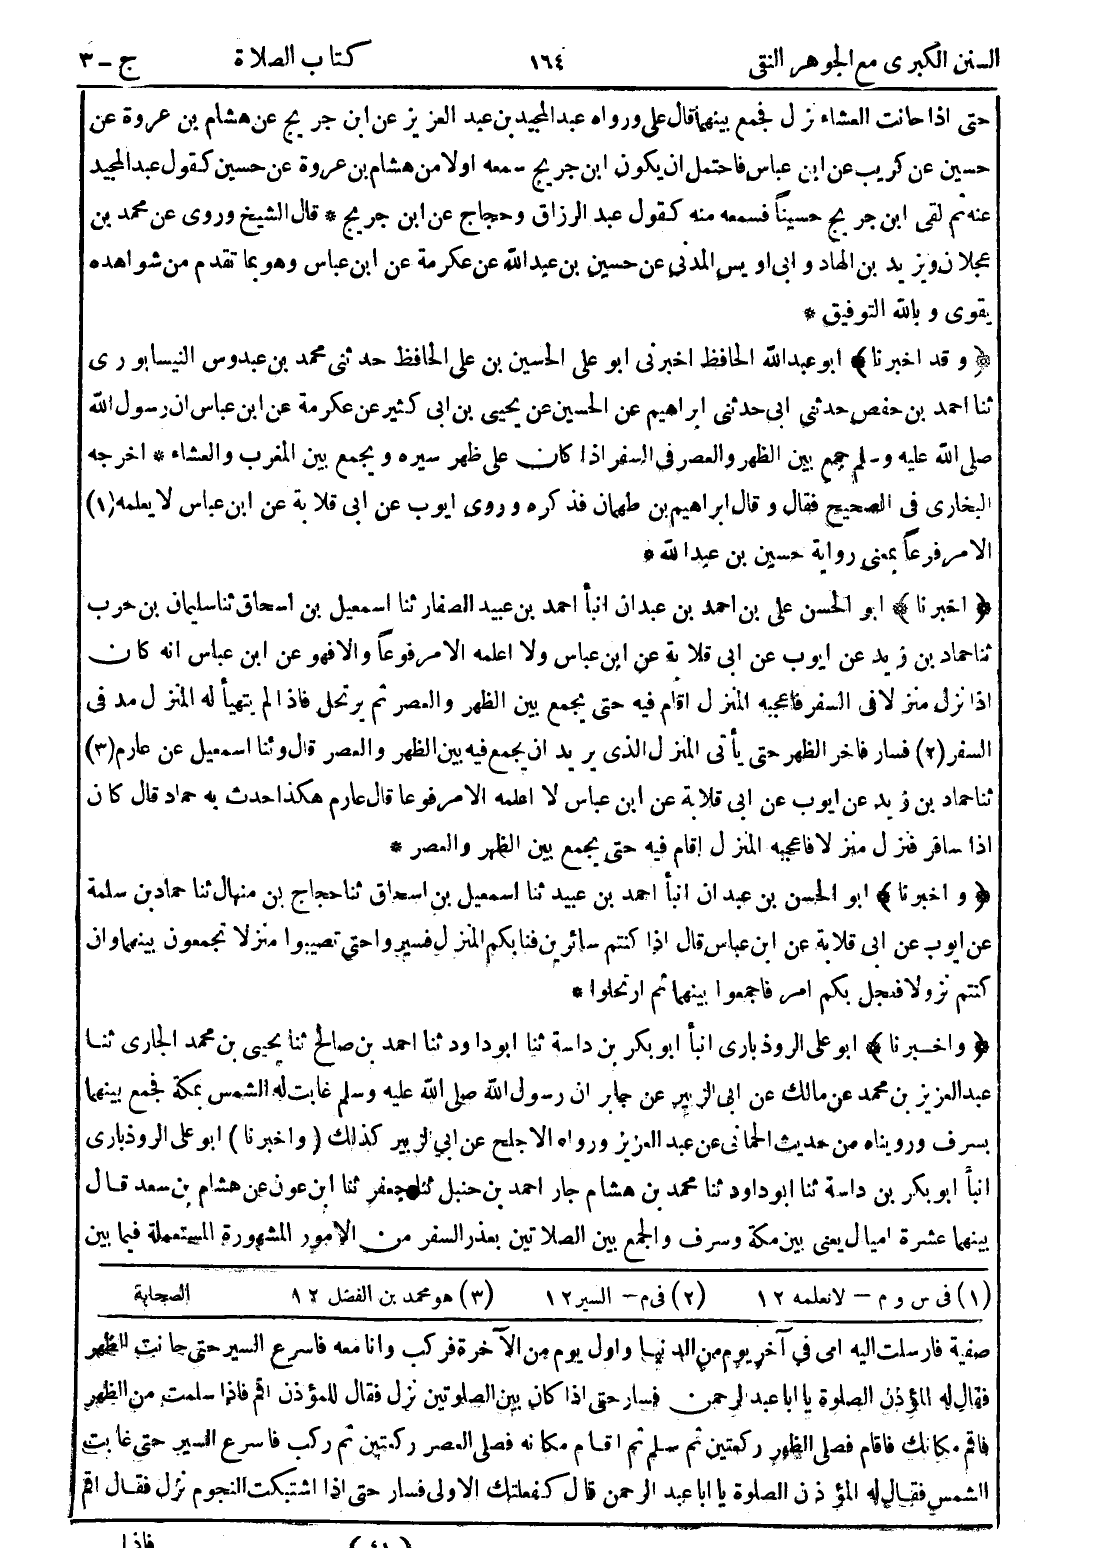 السنن الكبرى مع الجوهر النقى ١٦٤ كتاب الصلاة ج-٣
حتى اذا حانت العشاء نزل فجمع بينهما قال على ورواه عبد المجيد بن عبد العزيز عن ابن جريج عن هشام بن عروة عن
حسين عن كريب عن ابن عباس فاحتمل ان يكون ابن جريج سمعه اولا من هشام بن عروة عن حسين كقول عبد المجيد
عنه ثم لقى ابن جريج حسيناً فسمعه منه كقول عبد الرزاق وحجاج عن ابن جريج * قال الشيخ وروى عن محمد بن
عجلان ويزيد بن الهاد و ابى اويس المدنى عن حسين بن عبد الله عن عكرمة عن ابن عباس وهو بما تقدم من شواهده
يقوى و بالله التوفيق *
﴿ و قد اخبرنا ﴾ ابو عبدالله الحافظ اخبرنى ابو على الحسين بن على الحافظ حدثنى محمد بن عبدوس النيسابورى
ثنا احمد بن حفص حدثنى ابى حدثنى ابراهيم عن الحسين عن يحيى بن ابى كثير عن عكرمة عن ابن عباس ان رسول الله
صلى الله عليه وسلم جمع بين الظهر والعصر فى السفر اذا كان على ظهر سيره و يجمع بين المغرب والعشاء * اخرجه
البخارى فى الصحيح فقال و قال ابراهيم بن طهمان فذكره وروى ايوب عن ابى قلابة عن ابن عباس لا يعلمه (١)
الا مرفوعاً بمعنى رواية حسين بن عبد الله *
﴿ اخبرنا ﴾ ابو الحسن على بن احمد بن عبدان انبأ احمد بن عبيد الصفار ثنا اسمعيل بن اسحاق ثنا سليمان بن حرب
ثنا حماد بن زيد عن ايوب عن ابى قلابة عن ابن عباس ولا اعلمه الا مرفوعاً والا فهو عن ابن عباس انه كان
اذا نزل منزلا فى السفر فاعجبه المنزل اقام فيه حتى يجمع بين الظهر والعصر ثم يرتحل فاذا لم يتهيأ له المنزل مد فى
السفر (٢) فسار فاخر الظهر حتى يأتى المنزل الذى يريد ان يجمع فيه بين الظهر والعصر قال وثنا اسمعيل عن عارم (٣)
ثنا حماد بن زيد عن ايوب عن ابى قلابة عن ابن عباس لا اعلمه الا مرفوعا قال عارم هكذا حدث به حماد قال كان
اذا سافر فنزل منزلا فاعجبه المنزل اقام فيه حتى يجمع بين الظهر والعصر *
﴿ و اخبرنا ﴾ ابو الحسن بن عبدان انبأ احمد بن عبيد ثنا اسمعيل بن اسحاق ثنا حجاج بن منهال ثنا حماد بن سلمة
عن ايوب عن ابى قلابة عن ابن عباس قال اذا كنتم سائرين فنابكم المنزل فسيروا حتى تصيبوا منزلا تجمعون بينهما وان
كنتم نزولا فعجل بكم امر فاجمعوا بينهما ثم ارتحلوا *
﴿ واخبرنا ﴾ ابو على الروذبارى انبأ ابو بكر بن داسة ثنا ابوداود ثنا احمد بن صالح ثنا يحيى بن محمد الجارى ثنا
عبد العزيز بن محمد عن مالك عن ابى الزبير عن جابر ان رسول الله صلى الله عليه وسلم غابت له الشمس بمكة فجمع بينهما
بسرف ورويناه من حديث الحمانى عن عبد العزيز ورواه الاجلح عن ابى الزبير كذلك ( واخبرنا ) ابو على الروذبارى
انبأ ابو بكر بن داسة ثنا ابوداود ثنا محمد بن هشام جار احمد بن حنبل ثنا جعفر ثنا ابن عون عن هشام بن سعد قال
بينهما عشرة اميال يعنى بين مكة وسرف والجمع بين الصلاتين بعذر السفر من الامور المشهورة المستعملة فيما بين
(١) فى س و م - لا نعلمه ١٢ (٢) فى م - السير ١٢ (٣) هو محمد بن الفضل ١٢ الصحابة
صفية فارسلت اليه امى فى آخر يوم من الدنيا واول يوم من الآخرة فركب وانا معه فاسرع السير حتى حانت الظهر
فقال له المؤذن الصلوة يا ابا عبد الرحمن فسار حتى اذا كان بين الصلوتين نزل فقال للمؤذن اقم فاذا سلمت من الظهر
فاقم مكانك فاقام فصلى الظهر ركعتين ثم سلم ثم اقام مكانه فصلى العصر ركعتين ثم ركب فاسرع السير حتى غابت
الشمس فقال له المؤذن الصلوة يا ابا عبد الرحمن قال كفعلتك الاولى فسار حتى اذا اشتبكت النجوم نزل فقال اقم
(٤١) فاذا